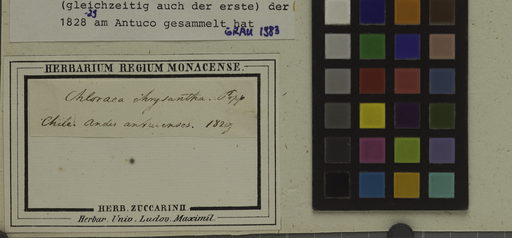 (gleichzeitig auch der erste) der
1828 -29 am Antuco gesammelt hat
GRAU 1983
HERBARIUM REGIUM MONACENSE.
Chloraea chrysantha. Pöpp
Chile. Andes 1829
HERB. ZUCCARINII
Herbar. Univ. Ludov. Maximil.